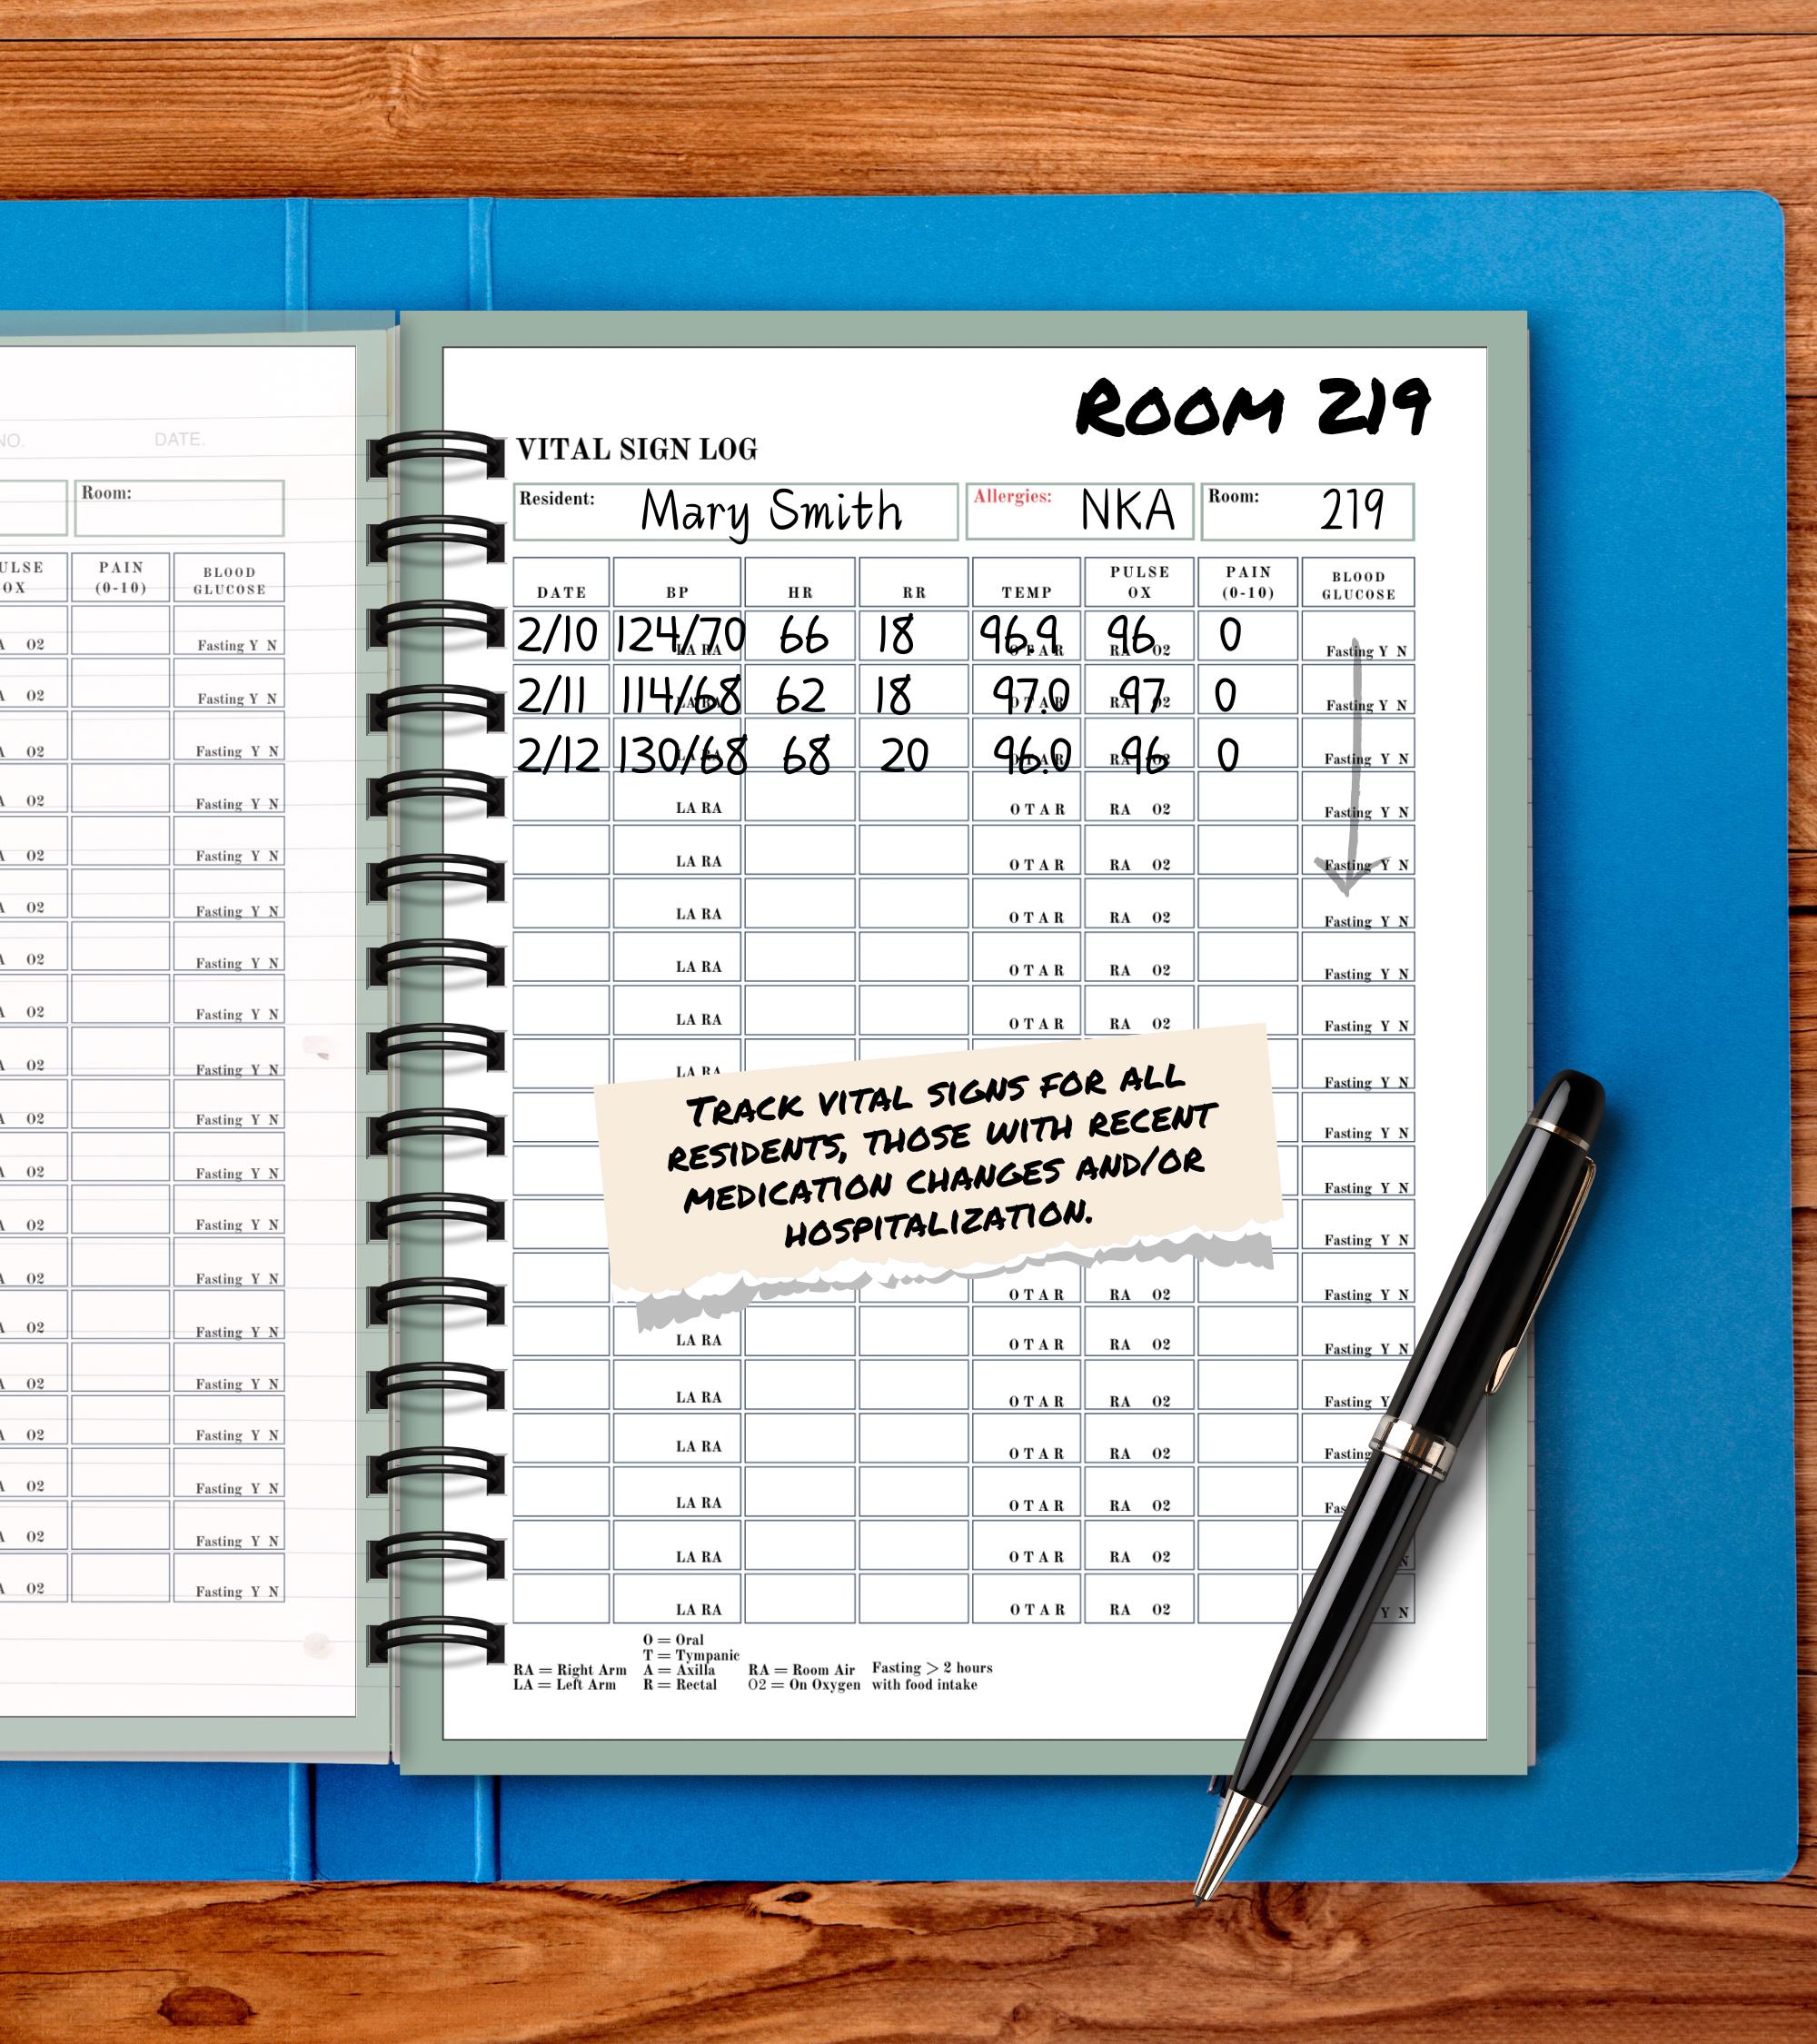 NO. DATE.
Room:
OX PAIN (0-10) BLOOD GLUCOSE
02 Fasting Y N
02 Fasting Y N
02 Fasting Y N
02 Fasting Y N
02 Fasting Y N
02 Fasting Y N
02 Fasting Y N
02 Fasting Y N
02 Fasting Y N
02 Fasting Y N
02 Fasting Y N
02 Fasting Y N
02 Fasting Y N
02 Fasting Y N
02 Fasting Y N
02 Fasting Y N
02 Fasting Y N
02 Fasting Y N
02 Fasting Y N
ROOM 219
VITAL SIGN LOG
Resident: Mary Smith Allergies: NKA Room: 219
DATE BP HR RR TEMP PULSE OX PAIN (0-10) BLOOD GLUCOSE
2/10 124/70 66 18 96.9 96 0 LA RA O T A R RA 02 Fasting Y N
2/11 114/68 62 18 97.0 97 0 LA RA O T A R RA 02 Fasting Y N
2/12 130/68 68 20 96.0 96 0 LA RA O T A R RA 02 Fasting Y N
LA RA O T A R RA 02 Fasting Y N
LA RA O T A R RA 02 Fasting Y N
LA RA O T A R RA 02 Fasting Y N
LA RA O T A R RA 02 Fasting Y N
LA RA O T A R RA 02 Fasting Y N
LA RA Fasting Y N
Fasting Y N
Fasting Y N
Fasting Y N
TRACK VITAL SIGNS FOR ALL
RESIDENTS, THOSE WITH RECENT
MEDICATION CHANGES AND/OR
HOSPITALIZATION.
O T A R RA 02 Fasting Y N
LA RA O T A R RA 02 Fasting Y N
LA RA O T A R RA 02 Fasting Y
LA RA O T A R RA 02 Fasting
LA RA O T A R RA 02
LA RA O T A R RA 02 N
LA RA O T A R RA 02 Y N
RA = Right Arm
LA = Left Arm
O = Oral
T = Tympanic
A = Axilla
R = Rectal
RA = Room Air
O2 = On Oxygen
Fasting > 2 hours
with food intake